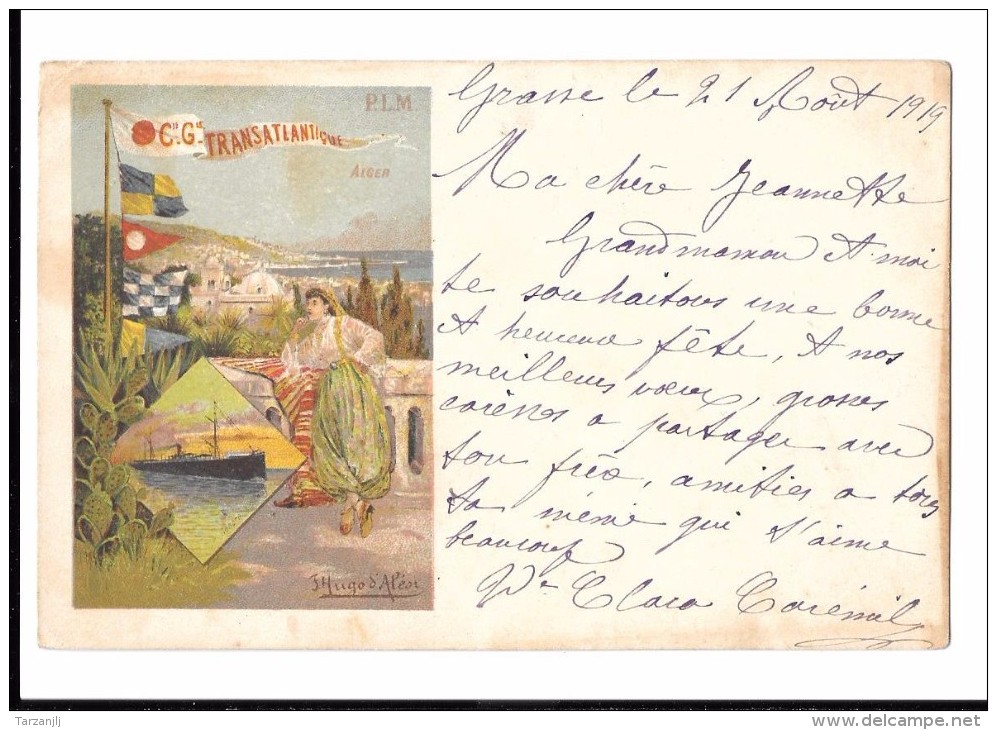 P.L.M
Cie Gle TRANSATLANTIQUE
ALGER
F. Hugo d'Alési
Grasse le 21 Août 1919
Ma chère Jeannette
Grandmaman & moi
te souhaitons une bonne
& heureuse fête, & nos
meilleurs vœux, grosses
caresses a partager avec
ton frère, amitiés a tous
ta mémé qui t'aime
beaucoup
Vve Clara
Tarzanjlj
www.delcampe.net